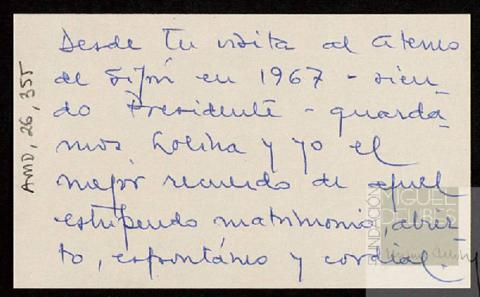 Desde tu visita al Ateneo
de Gijón en 1967 - sien-
do Presidente - guarda-
mos Lolina y yo el
mejor recuerdo de aquel
estupendo matrimonio, abier-
to, espontáneo y cordial.
AMD, 26, 355
FUNDACIÓN
MIGUEL
DELIBES